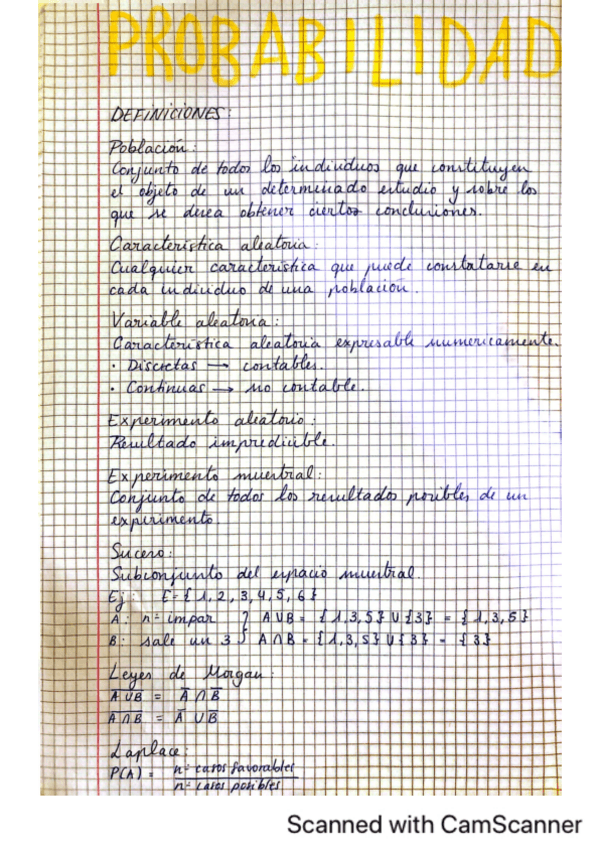 PROBABILIDAD
DEFINICIONES:
Población:
Conjunto de todos los individuos que constituyen
el objeto de un determinado estudio y sobre los
que se desea obtener ciertas conclusiones.
Característica aleatoria:
Cualquier característica que puede constatarse en
cada individuo de una población.
Variable aleatoria:
Característica aleatoria expresable numericamente.
· Discretas → contables.
· Continuas → no contable.
Experimento aleatorio:
Resultado impredicible.
Experimento muestral:
Conjunto de todos los resultados posibles de un
experimento
Suceso:
Subconjunto del espacio muestral.
Ej: E={1,2,3,4,5,6}
A: nº impar } A∪B = {1,3,5} ∪ {3} = {1,3,5}
B: sale un 3 } A∩B = {1,3,5} ∪ {3} = {3}
Leyes de Morgan:
A̅ ̅∪̅ ̅B̅ = A̅ ∩ B̅
A̅ ̅∩̅ ̅B̅ = A̅ ∪ B̅
Laplace:
P(A) = nº casos favorables
nº casos posibles
Scanned with CamScanner